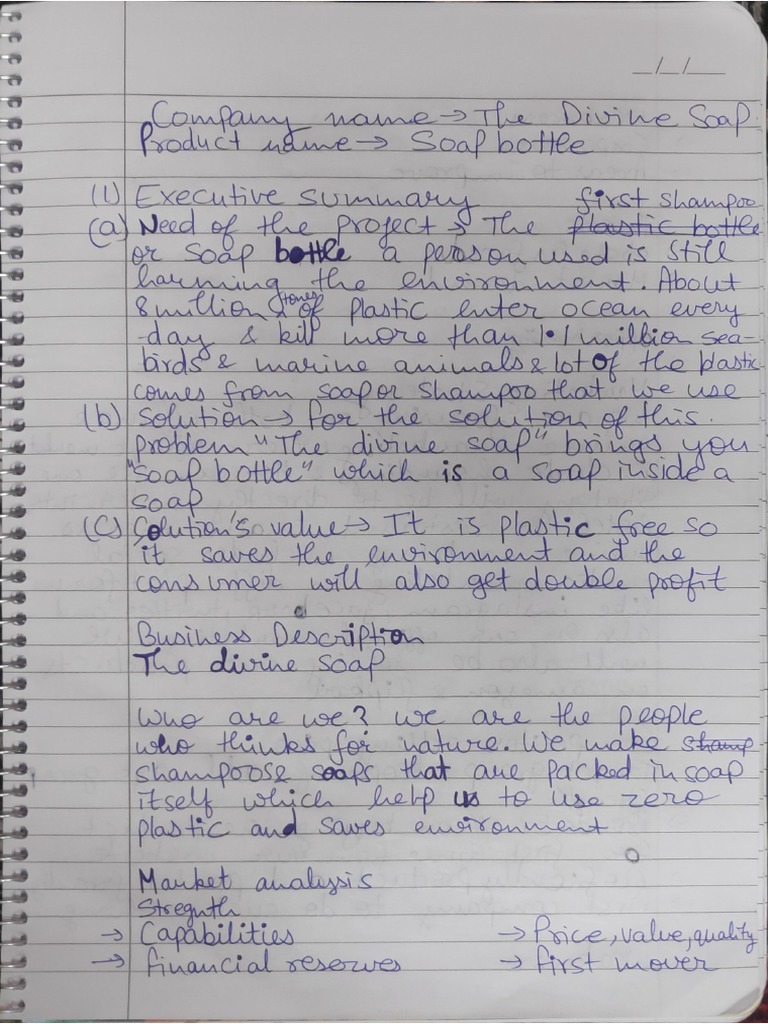 _/_/_
Company name → The Divine Soap.
Product name → Soap bottle
(1) Executive summary first shampoo
(a) Need of the project → The plastic bottle
or soap bottle a person used is still
harming the environment. About
8 million tones of plastic enter ocean every
-day & kill more than 1.1 million sea-
birds & marine animals & lot of the plastic
comes from soap or shampoo that we use
(b) Solution → for the solution of this.
problem "The divine soap" brings you
"soap bottle" which is a soap inside a
soap
(C) Solution's value → It is plastic free so
it saves the environment and the
consumer will also get double profit
Business Description
The divine soap
Who are we? we are the people
who thinks for nature. We make shamp
shampoos & soaps that are packed in soap
itself which help us to use zero
plastic and saves environment
Market analysis
Stregnth
→ Capabilities → Price, value, quality
→ financial reserves → first mover